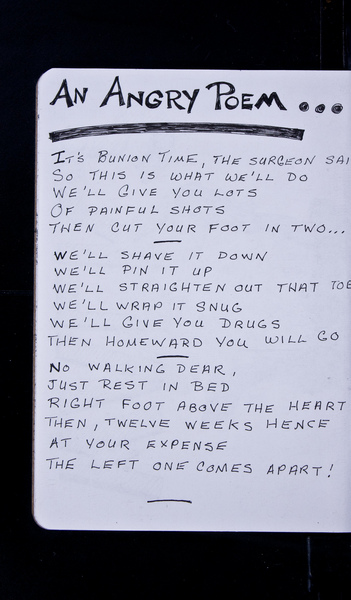 AN ANGRY POEM ...
IT'S BUNION TIME, THE SURGEON SAI
SO THIS IS WHAT WE'LL DO
WE'LL GIVE YOU LOTS
OF PAINFUL SHOTS
THEN CUT YOUR FOOT IN TWO...
WE'LL SHAVE IT DOWN
WE'LL PIN IT UP
WE'LL STRAIGHTEN OUT THAT TOE
WE'LL WRAP IT SNUG
WE'LL GIVE YOU DRUGS
THEN HOMEWARD YOU WILL GO
NO WALKING DEAR,
JUST REST IN BED
RIGHT FOOT ABOVE THE HEART
THEN, TWELVE WEEKS HENCE
AT YOUR EXPENSE
THE LEFT ONE COMES APART!